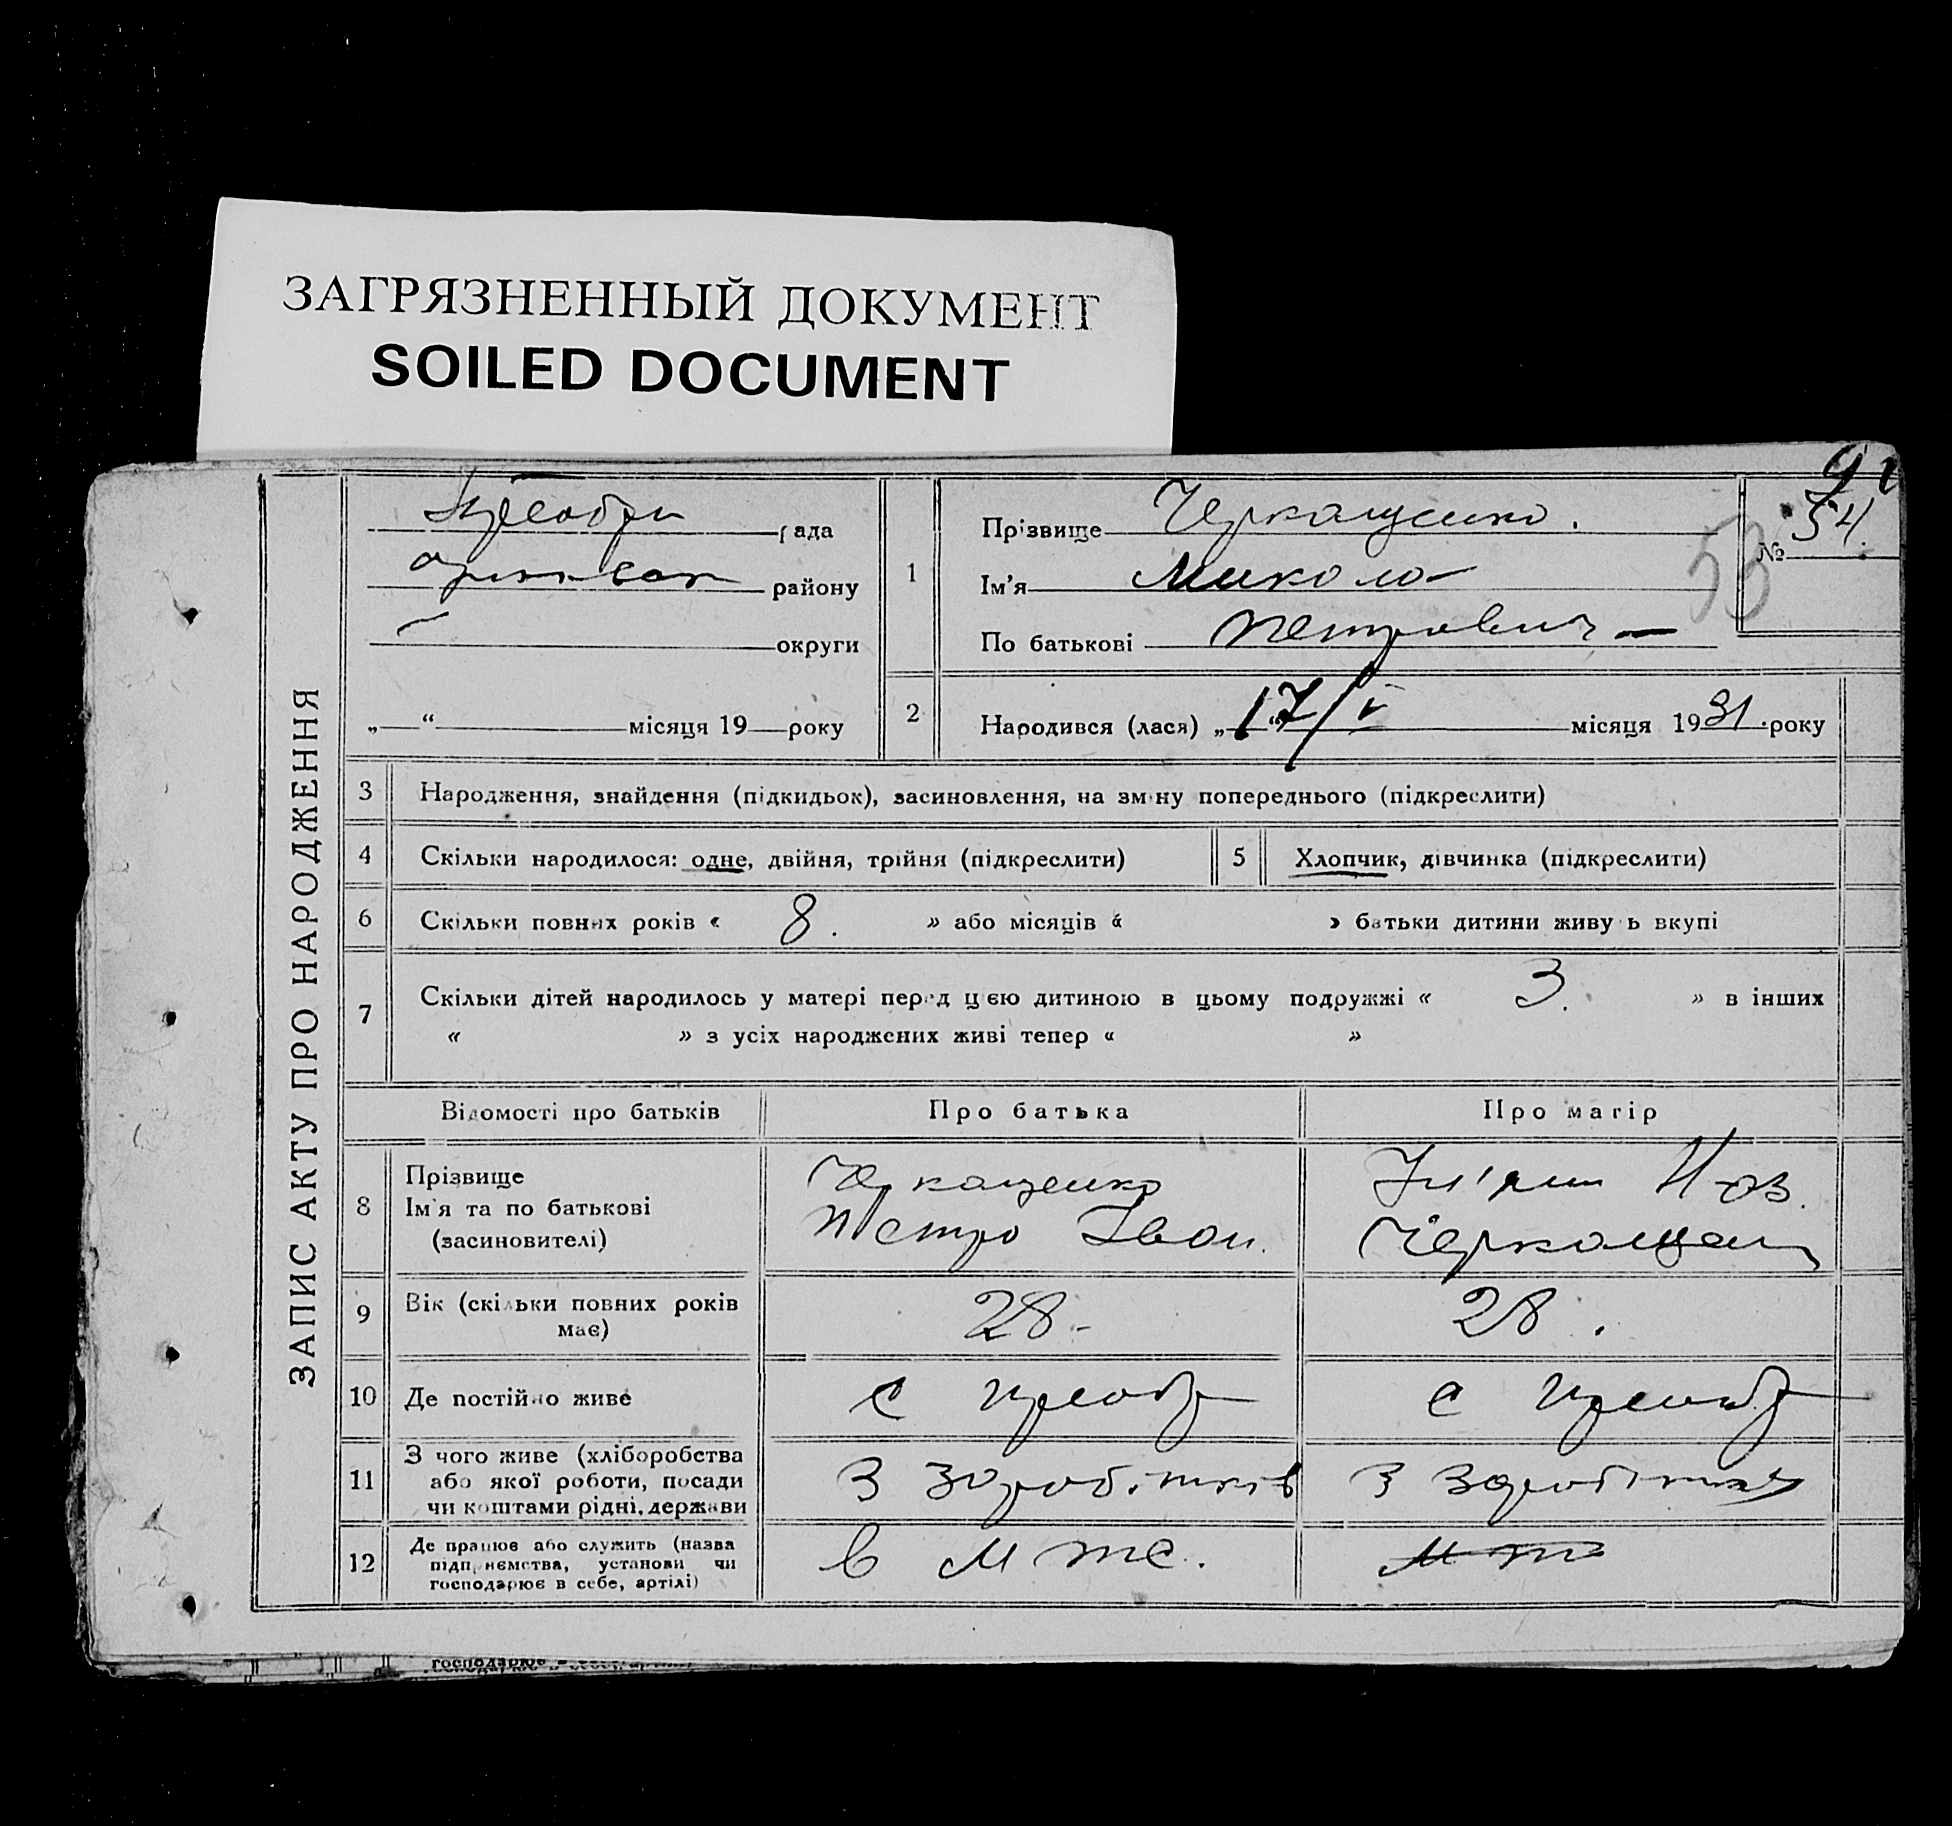 ЗАГРЯЗНЕННЫЙ ДОКУМЕНТ
SOILED DOCUMENT
ЗАПИС АКТУ ПРО НАРОДЖЕННЯ
рада
району
округи
„ “ місяця 19 року
91
№ 54.
53
1
Прізвище Черкащенко.
Ім'я Микола
По батькові Петрович
2 Народився (лася) „17/V“ місяця 1931. року
3 Народження, знайдення (підкидьок), засиновлення, на зміну попереднього (підкреслити)
4 Скільки народилося: одне, двійня, трійня (підкреслити)
5 Хлопчик, дівчинка (підкреслити)
6 Скільки повних років « 8. » або місяців « » батьки дитини живуть вкупі
7 Скільки дітей народилось у матері перед цією дитиною в цьому подружжі « 3. » в інших
« » з усіх народжених живі тепер « »
Відомості про батьків Про батька Про матір
8 Прізвище
Ім'я та по батькові
(засиновителі)
Черкащенко
Петро Іван.
9 Вік (скільки повних років
має)
28-
28.
10 Де постійно живе
с
с
11 З чого живе (хліборобства
або якої роботи, посади
чи коштами рідні, держави
З заробітків
З заробітків
12 Де працює або служить (назва
підприємства, установи чи
господарює в себе, артілі)
в М т с.
господарює